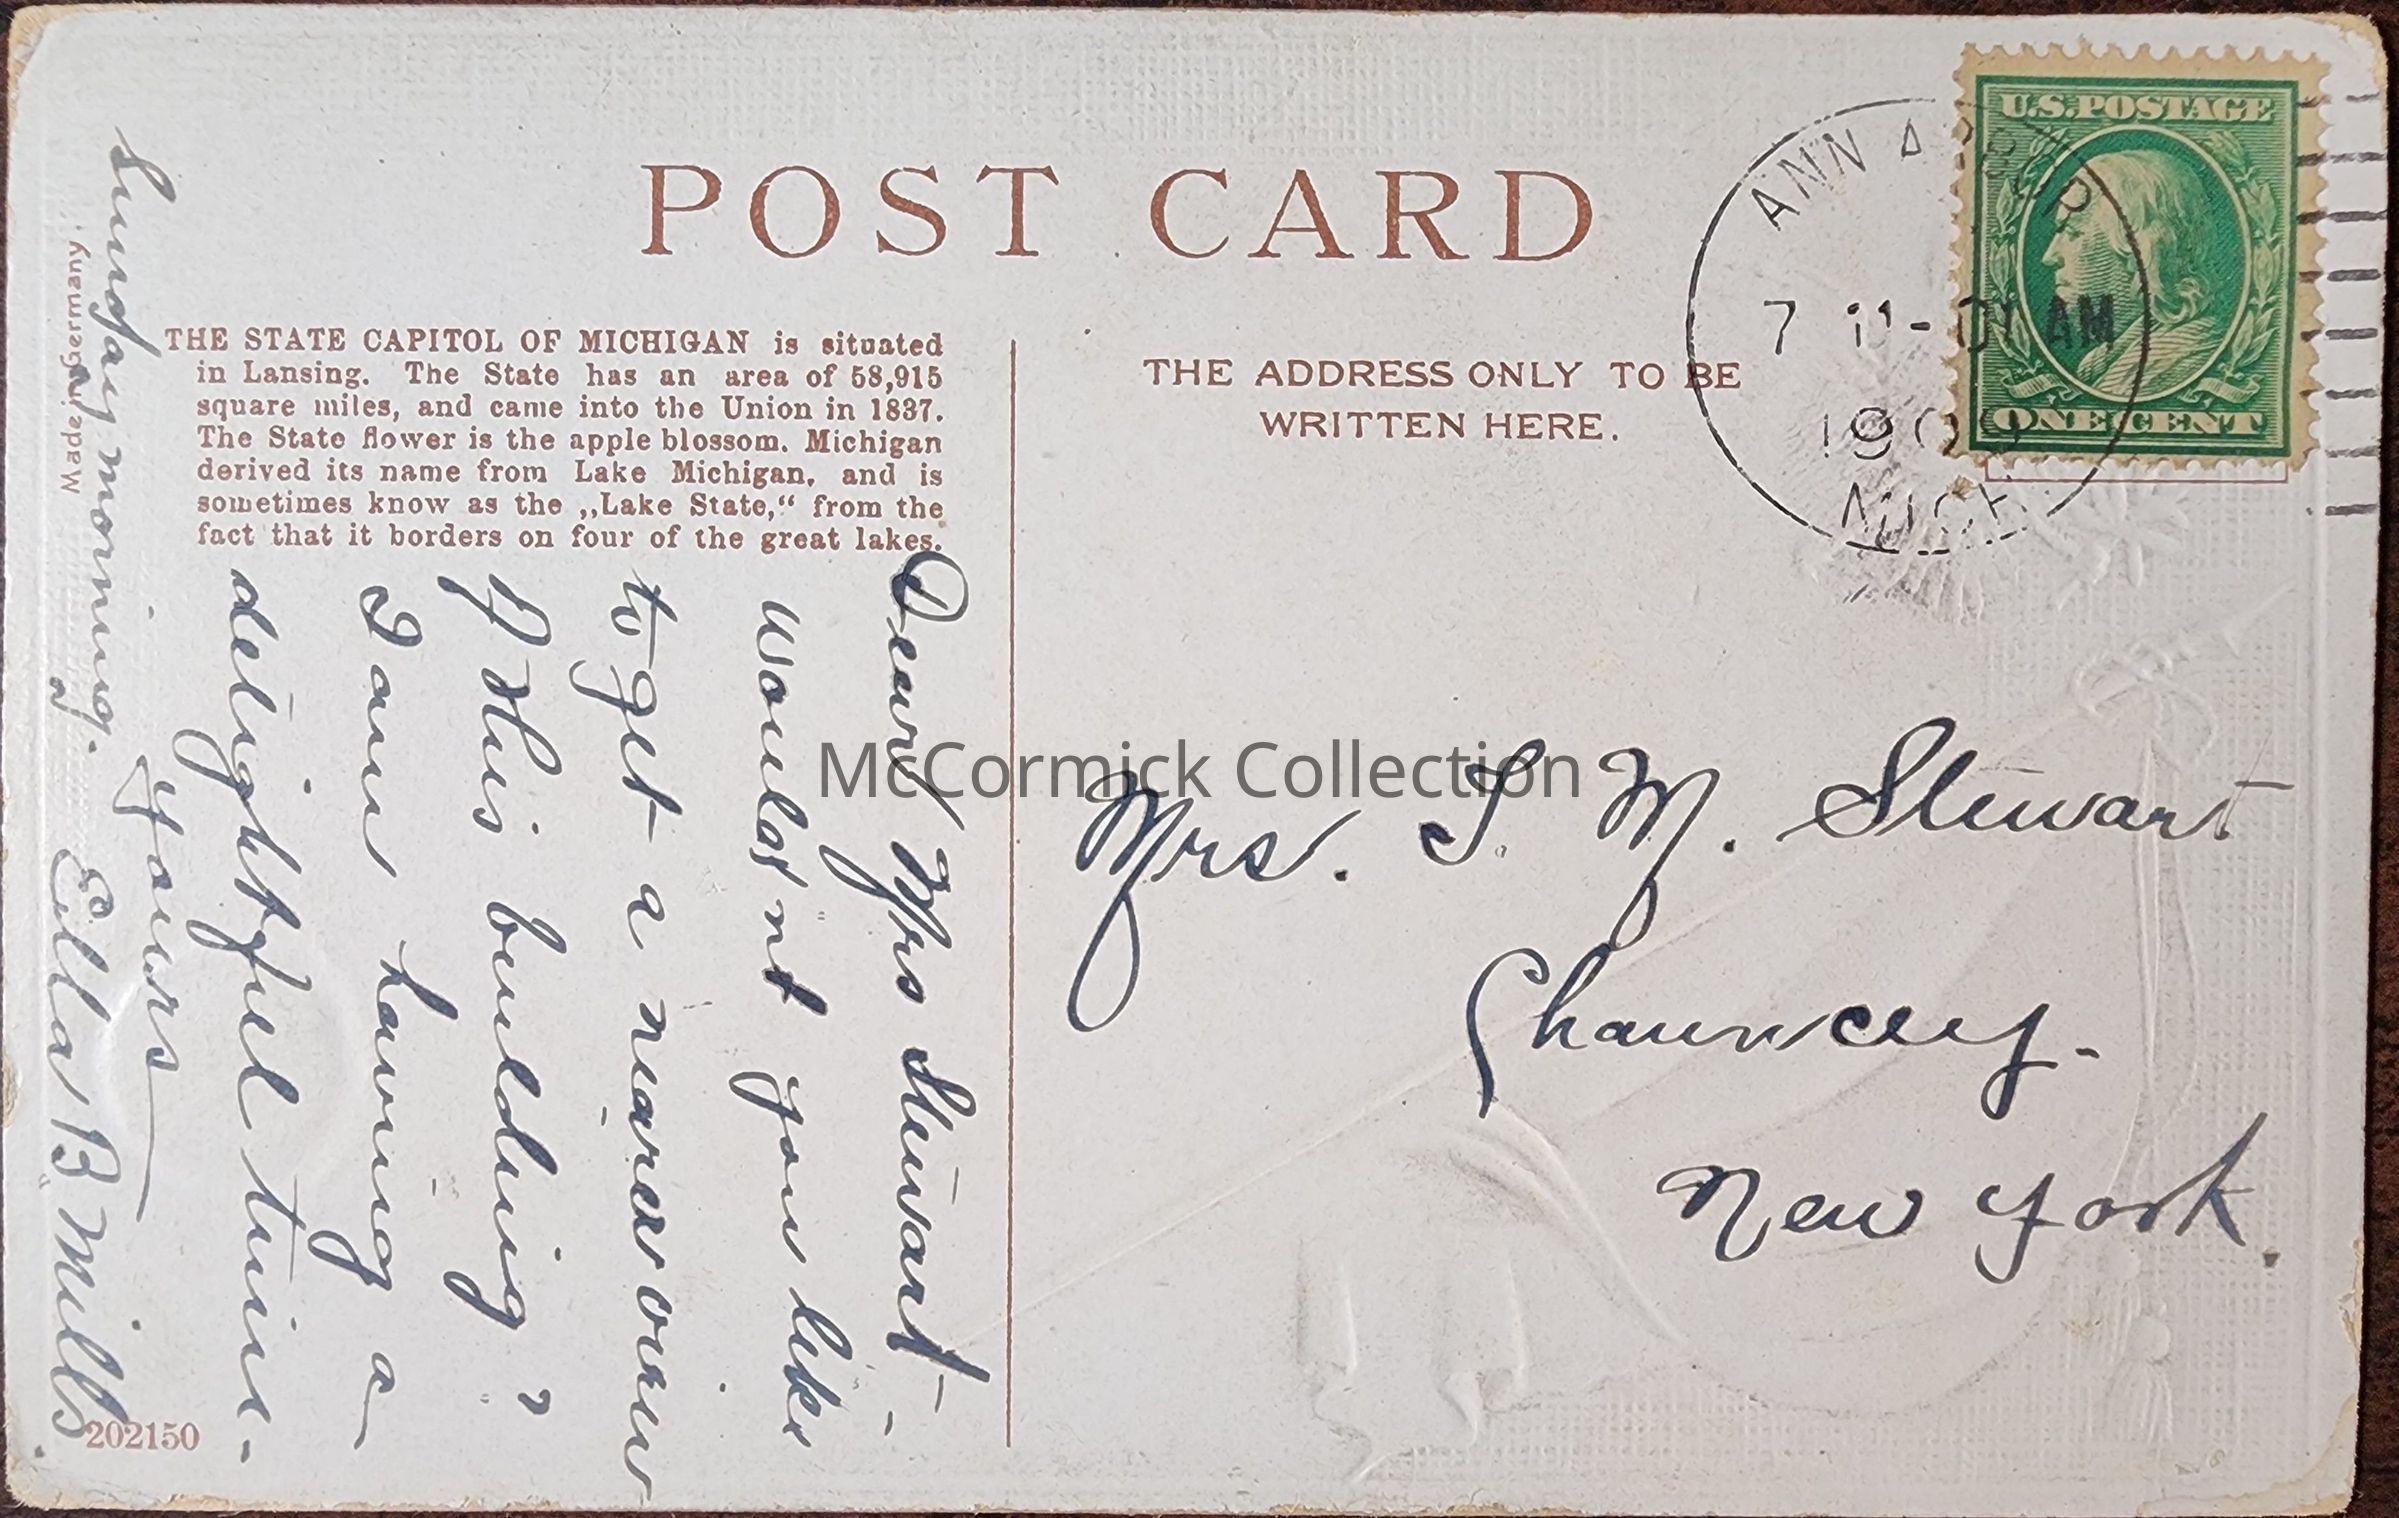 POST CARD
U.S. POSTAGE
ONE CENT
ANN ARBOR
7 AM
MICH
THE STATE CAPITOL OF MICHIGAN is situated
in Lansing. The State has an area of 58,915
square miles, and came into the Union in 1837.
The State flower is the apple blossom. Michigan
derived its name from Lake Michigan, and is
sometimes know as the „Lake State,“ from the
fact that it borders on four of the great lakes.
THE ADDRESS ONLY TO BE
WRITTEN HERE.
Made in Germany.
Sunday morning.
Dear Mrs Stewart -
would nt you like
to get a nearer view
of this building?
I am having a
delightful time -
Yours
Ella B Mills.
Mrs. S. M. Stewart
Chauncey.
New York.
202150
McCormick Collection